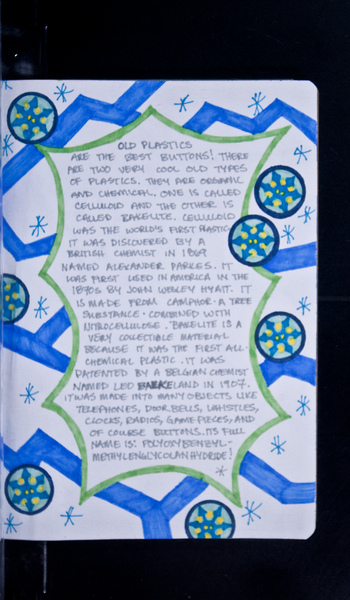 OLD PLASTICS
ARE THE BEST BUTTONS! THERE
ARE TWO VERY COOL OLD TYPES
OF PLASTICS. THEY ARE ORGANIC
AND CHEMICAL. ONE IS CALLED
CELLULOID AND THE OTHER IS
CALLED BAKELITE. CELLULOID
WAS THE WORLD'S FIRST PLASTIC.
IT WAS DISCOVERED BY A
BRITISH CHEMIST IN 1869
NAMED ALEXANDER PARKES. IT
WAS FIRST USED IN AMERICA IN THE
1870s BY JOHN WESLEY HYATT. IT
IS MADE FROM CAMPHOR - A TREE
SUBSTANCE - COMBINED WITH
NITROCELLULOSE. BAKELITE IS A
VERY COLLECTIBLE MATERIAL
BECAUSE IT WAS THE FIRST ALL-
CHEMICAL PLASTIC. IT WAS
PATENTED BY A BELGIAN CHEMIST
NAMED LEO BAEKELAND IN 1907.
IT WAS MADE INTO MANY OBJECTS LIKE
TELEPHONES, DOOR BELLS, WHISTLES,
CLOCKS, RADIOS, GAME PIECES, AND
OF COURSE BUTTONS. ITS FULL
NAME IS: POLYOXYBENZYL-
METHYLENGLYCOLANHYDRIDE!